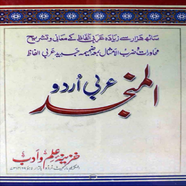 ساٹھ ہزار سے زیادہ عربی الفاظ کے معانی و تشریح
محاورات و ضرب الامثال بمع ضمیمہ جدید عربی الفاظ
المنجد
عربی اردو
خزینۂ علم و ادب